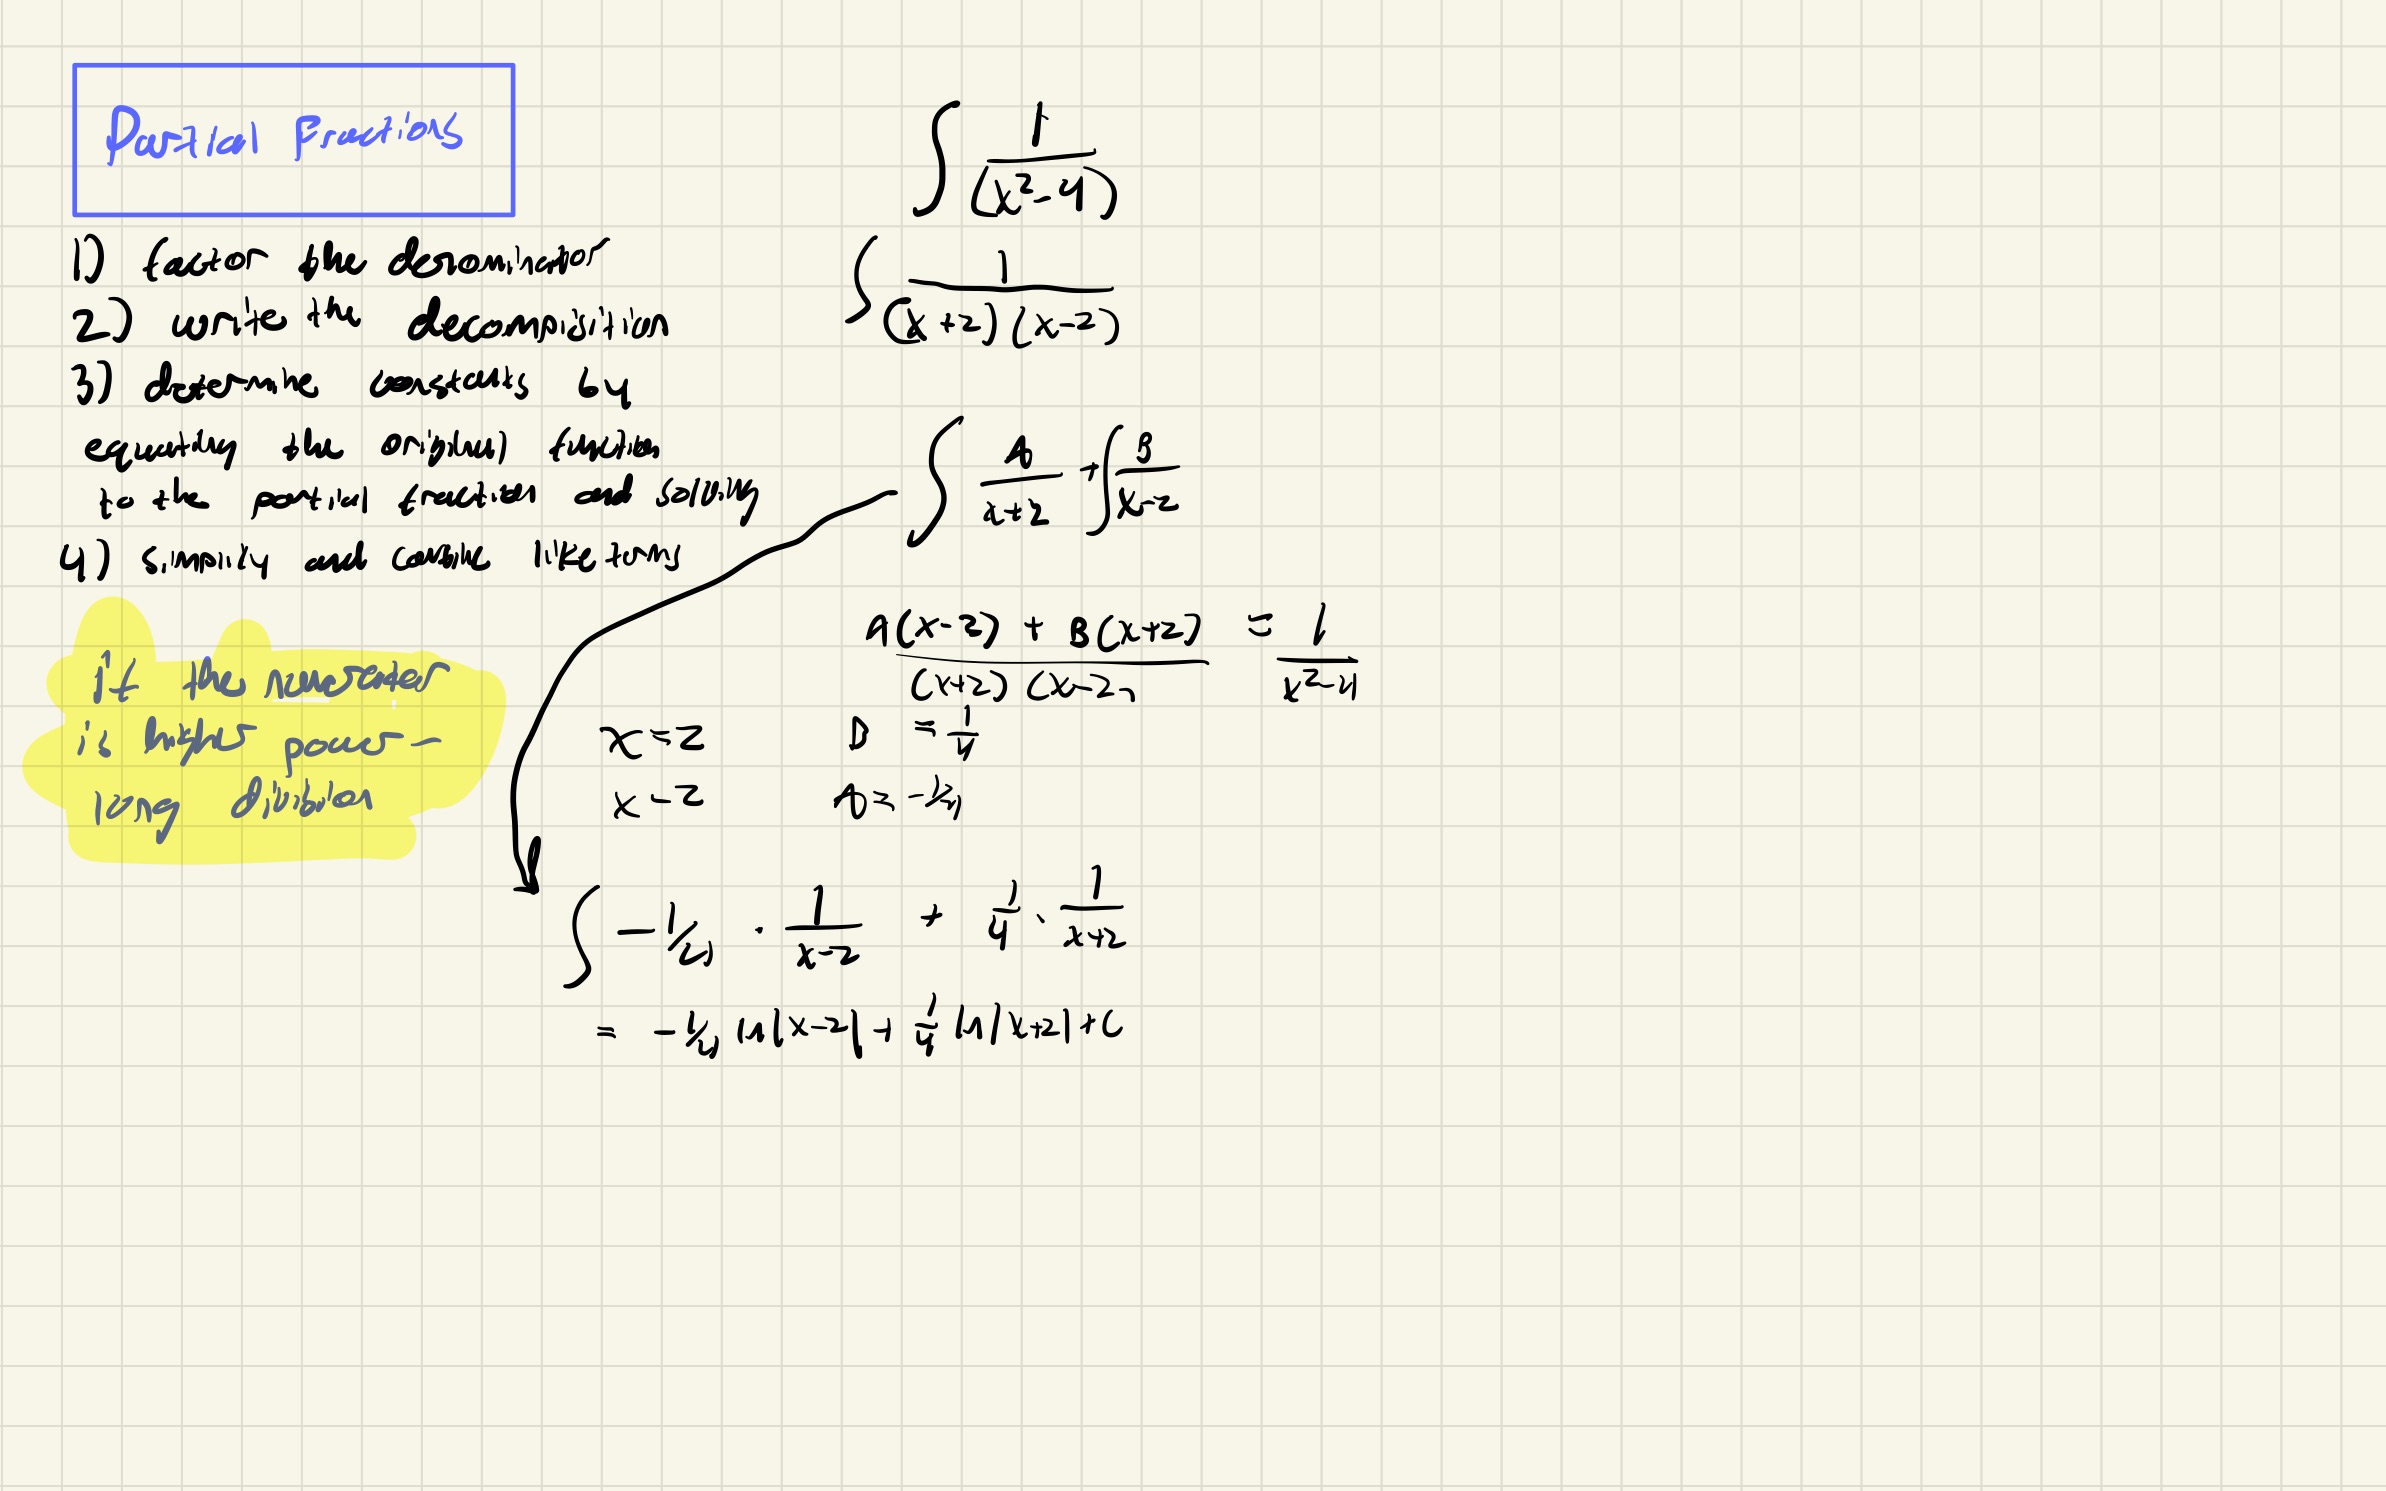 Partial Fractions
1) factor the denominator
2) write the decomposition
3) determine constants by
equating the original function
to the partial fraction and solving
4) simplify and combine like terms
if the numerator
is higher power —
long division
∫ 1/(x²-4)
∫ 1/((x+2)(x-2))
∫ A/(x+2) + ∫ B/(x-2)
(A(x-2) + B(x+2))/((x+2)(x-2)) = 1/(x²-4)
x=2 B = 1/4
x-2 A = -1/4
∫ -1/4 · 1/(x-2) + 1/4 · 1/(x+2)
= -1/4 ln|x-2| + 1/4 ln|x+2| + C